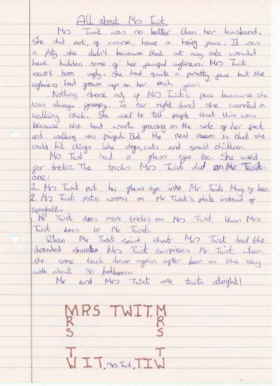 All about Mrs Twit
Mrs Twit was no better than her husband.
She did not, of course, have a hairy face. It was
a pity she didn't because that at any rate would
have hidden some of her fearful ugliness. Mrs Twit
wasn't born ugly. She had quite a pretty face but the
ugliness had grown upon her each year.
Nothing shone out of Mrs Twit's face because she
was always grumpy. In her right hand she carried a
walking stick. She used to tell people that this was
because she had warts growing on the sole of her foot
and walking was painful. But the real reason is that she
could hit things like dogs, cats and small children.
Mrs Twit had a glass eye too. She used
for tricks. The tricks Mrs Twit did on Mr Twit
are:
1. Mrs Twit put her glass eye into Mr Twit's Mug of beer.
2. Mrs Twit puts worms on Mr Twit's plate instead of
spaghetti.
Mr Twit does more tricks on Mrs Twit than Mrs
Twit does to Mr Twit.
When Mr Twit Mrs Twit had the
Mrs Twit surprises Mr Twit when
she came back down again after on the way
with about 50 balloons.
Mr and Mrs Twit are twits alright!
MRS TWIT
MRS
MRS
TWIT
Mrs Twit
TIW